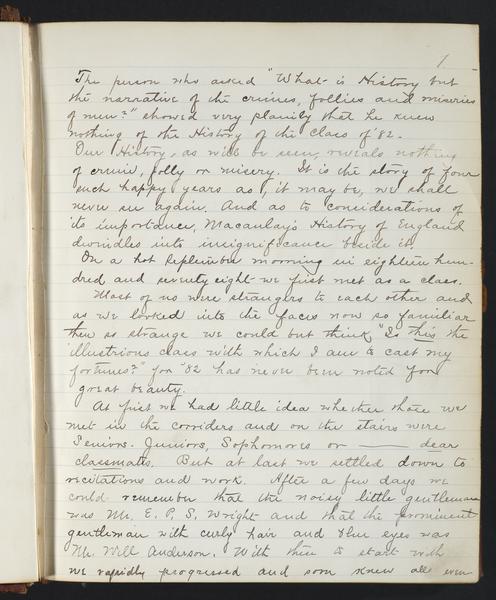 1
The person who asked "What is History but
the narrative of the crimes, follies and miseries
of men?" showed very plainly that he knew
nothing of the History of the Class of '82.
Our History, as will be seen, reveals nothing
of crime, folly or misery. It is the story of four
such happy years as, it may be, we shall
never see again. And as to considerations of
its importance, Macaulay's History of England
dwindles into insignificance beside it.
On a hot September morning in eighteen hun-
dred and seventy eight we first met as a class.
Most of us were strangers to each other and
as we looked into the faces now so familiar
then so strange we could but think "Is this the
illustrious class with which I am to cast my
fortunes?" for '82 has never been noted for
great beauty.
At first we had little idea whether those we
met in the corridors and on the stairs were
Seniors. Juniors, Sophomores or ——— dear
classmates. But at last we settled down to
recitations and work. After a few days we
could remember that the noisy little gentleman
was Mr. E. P. S. Wright and that the prominent
gentleman with curly hair and blue eyes was
Mr. Will Anderson. With these to start with
we rapidly progressed and soon knew all even